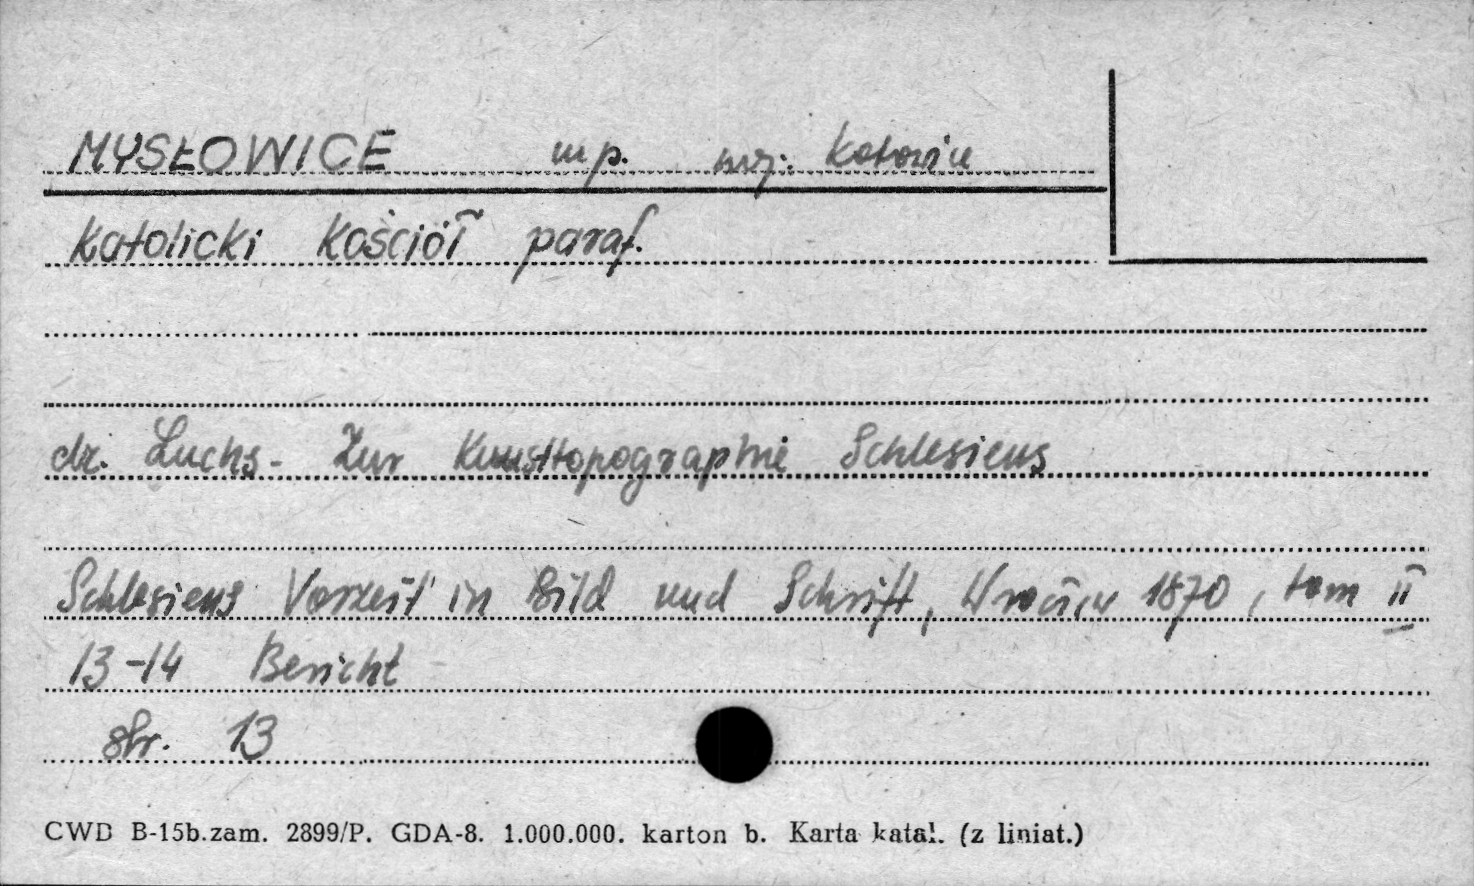 MYSŁOWICE mp. woj. Katowice
Katolicki Kościół paraf.
dr. Luchs - Zur Kunsttopographie Schlesiens
Schlesiens Vorzeit in Bild und Schrift, Wrocław 1870, tom II
13-14 Bericht
str. 13
CWD B-15b.zam. 2899/P. GDA-8. 1.000.000. karton b. Karta katal. (z liniat.)